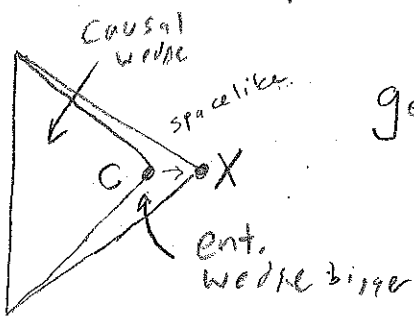 causal
wedge
spacelike
C → X
ent.
wedge bigger